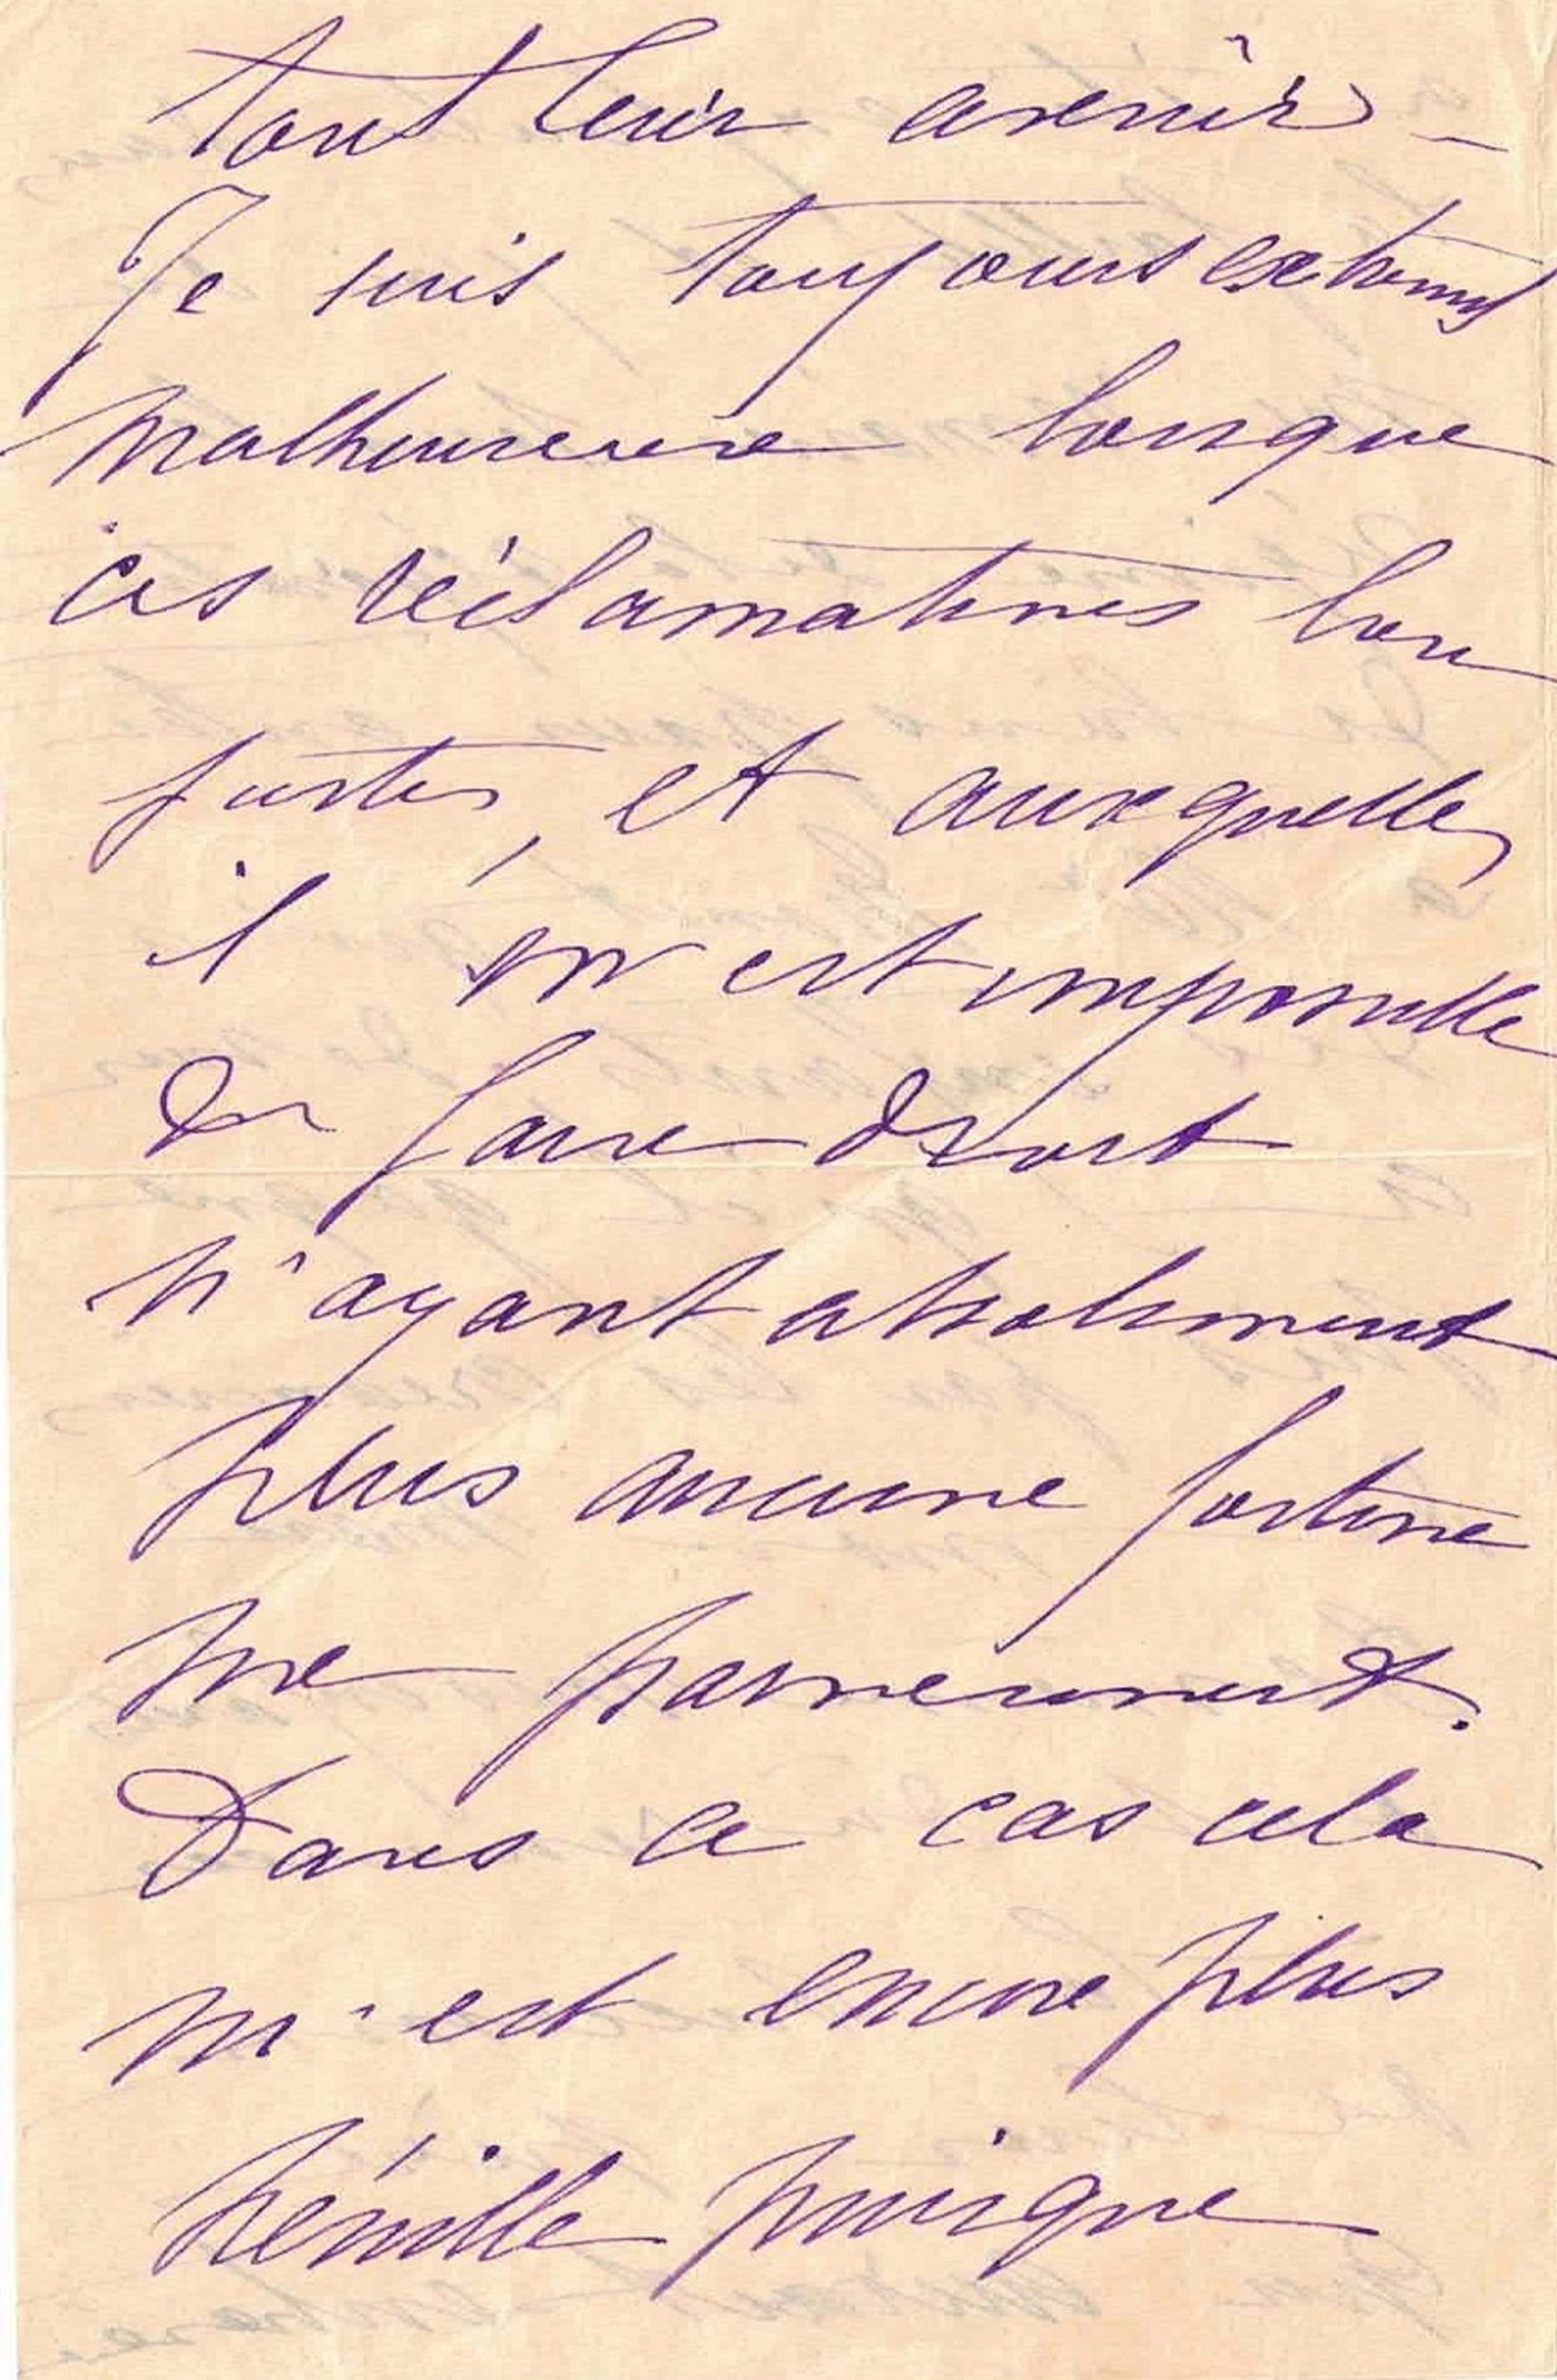 tout leur avenir –
Je suis toujours extrêmt
malheureuse lorsque
ces réclamations bien
justes, et auxquelles
il m'est impossible
de faire droit
n'ayant absolument
plus aucune fortune
me parviennent.
Dans ce cas cela
m'est encore plus
pénible puisque